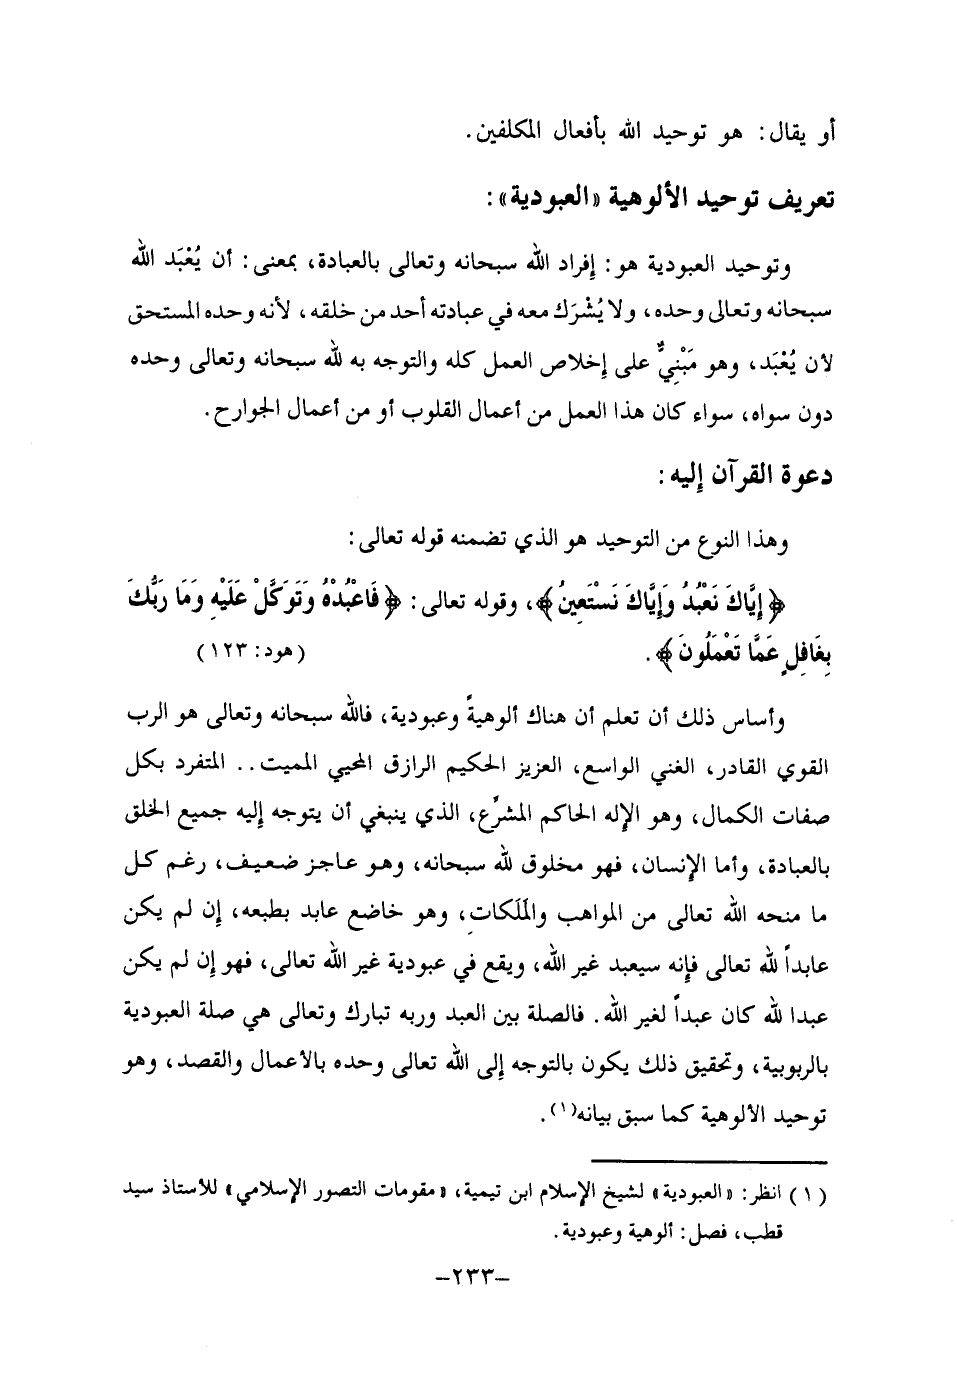 أو يقال: هو توحيد الله بأفعال المكلفين.
تعريف توحيد الألوهية «العبودية»:
وتوحيد العبودية هو: إفراد الله سبحانه وتعالى بالعبادة، بمعنى: أن يُعْبَد الله
سبحانه وتعالى وحده، ولا يُشْرَك معه في عبادته أحد من خلقه، لأنه وحده المستحق
لأن يُعْبَد، وهو مَبْنِيٌّ على إخلاص العمل كله والتوجه به لله سبحانه وتعالى وحده
دون سواه، سواء كان هذا العمل من أعمال القلوب أو من أعمال الجوارح.
دعوة القرآن إليه:
وهذا النوع من التوحيد هو الذي تضمنه قوله تعالى:
﴿إِيَّاكَ نَعْبُدُ وَإِيَّاكَ نَسْتَعِينُ﴾، وقوله تعالى: ﴿فَاعْبُدْهُ وَتَوَكَّلْ عَلَيْهِ وَمَا رَبُّكَ
بِغَافِلٍ عَمَّا تَعْمَلُونَ﴾. (هود: ١٢٣)
وأساس ذلك أن تعلم أن هناك ألوهيةً وعبودية، فالله سبحانه وتعالى هو الرب
القوي القادر، الغني الواسع، العزيز الحكيم الرازق المحيي المميت.. المتفرد بكل
صفات الكمال، وهو الإله الحاكم المشرِّع، الذي ينبغي أن يتوجه إليه جميع الخلق
بالعبادة، وأما الإنسان، فهو مخلوق لله سبحانه، وهو عاجز ضعيف، رغم كل
ما منحه الله تعالى من المواهب والمَلَكات، وهو خاضع عابد بطبعه، إن لم يكن
عابداً لله تعالى فإنه سيعبد غير الله، ويقع في عبودية غير الله تعالى، فهو إن لم يكن
عبدا لله كان عبداً لغير الله. فالصلة بين العبد وربه تبارك وتعالى هي صلة العبودية
بالربوبية، وتحقيق ذلك يكون بالتوجه إلى الله تعالى وحده بالأعمال والقصد، وهو
توحيد الألوهية كما سبق بيانه(١).
(١) انظر: «العبودية» لشيخ الإسلام ابن تيمية، «مقومات التصور الإسلامي» للأستاذ سيد
قطب، فصل: ألوهية وعبودية.
–٢٣٣–